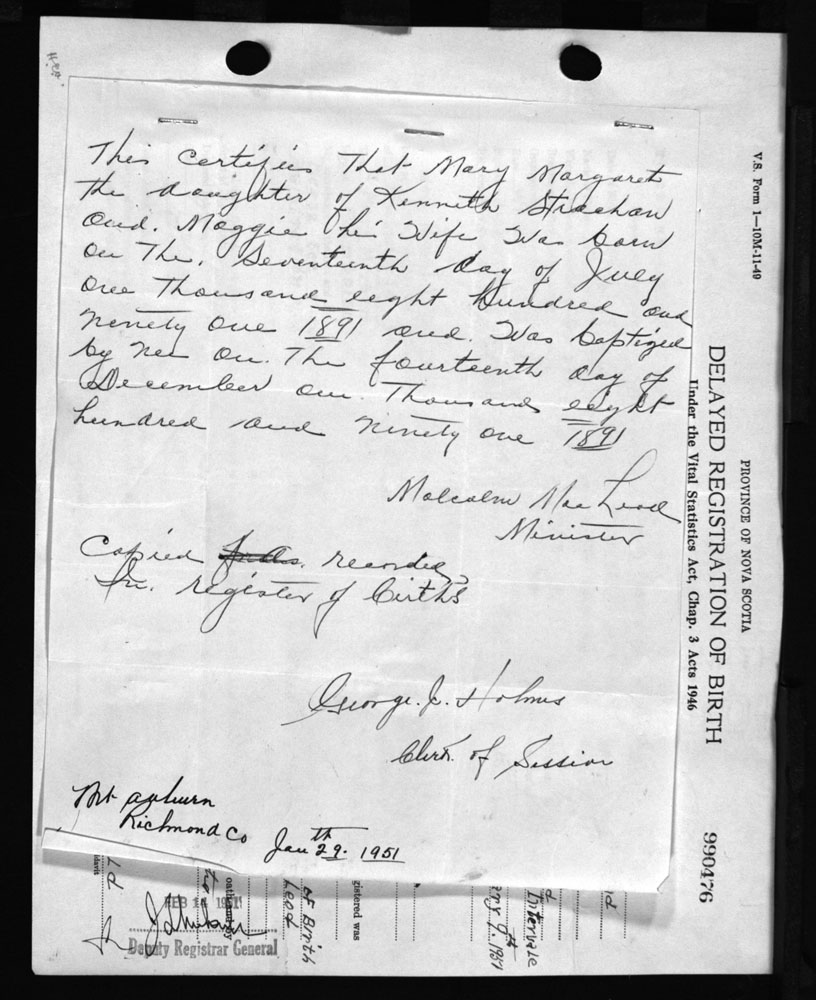 This Certifies That Mary Margaret
the daughter of Kenneth Strachan
and. Maggie his Wife Was born
on The. Seventeenth day of July
one Thousand eeght hundred and
ninety one 1891 and. Was baptized
by me on. The fourteenth day of
December one. Thousand eeght
hundred and ninety one 1891
Malcolm Mac Leod
Minister
Copied recorded
In. register of births
George. J. Holmes
Clerk of Session
Mt auburn
Richmond Co Jan 29th. 1951
V.S. Form 1—10M-11-49
PROVINCE OF NOVA SCOTIA
DELAYED REGISTRATION OF BIRTH
Under the Vital Statistics Act, Chap. 3 Acts 1946
990476
FEB 14 1951
Deputy Registrar General
of Birth
Leod
gistered was
Intervale
9th 1951